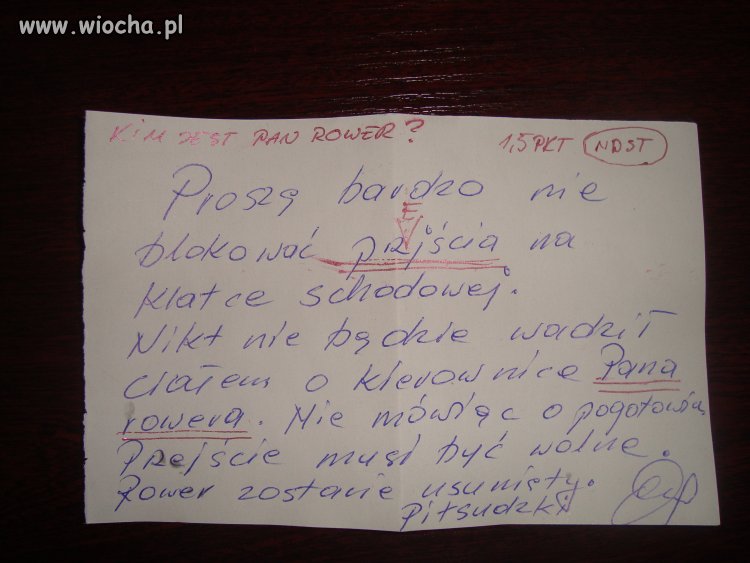 www.wiocha.pl
KIM JEST PAN ROWER? 1,5PKT NDST
Proszę bardzo nie
E
blokować prjścia na
klatce schodowej.
Nikt nie będzie wadził
ciałem o kierownice Pana
rowera. Nie mówiąc o pogotowiu,
Przejście musi być wolne.
Rower zostanie usunięty.
Piłsudzki